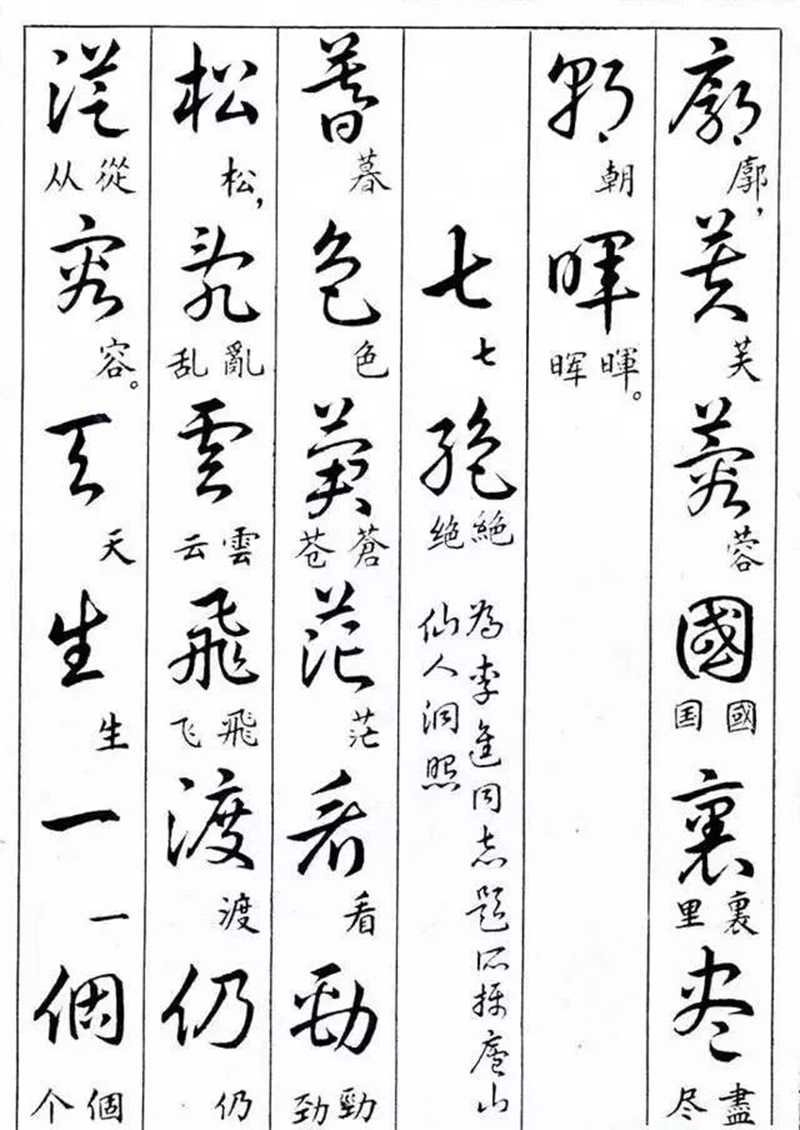 廓廓，芙芙蓉蓉國國国裏裏里尽盡尽
朝朝暉暉晖。
七七絶絶绝
為李進同志題所攝廬山
仙人洞照
暮暮色色蒼蒼苍茫茫看看勁勁劲
松松，亂亂乱雲雲云飛飛飞渡渡仍仍
從從从容容。天天生生一一個個个